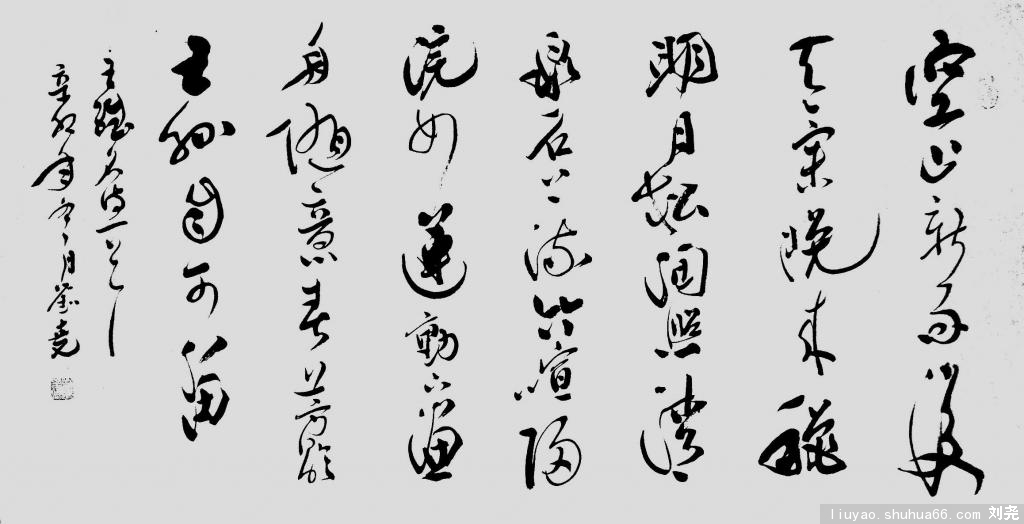 空山新雨後
天氣晚来秋
明月松间照清
泉石上流竹喧歸
浣女蓮動下漁
舟隨意春芳歇
王孫自可留
王維名诗一首
辛卯年冬月劉堯
liuyao.shuhua66.com 刘尧